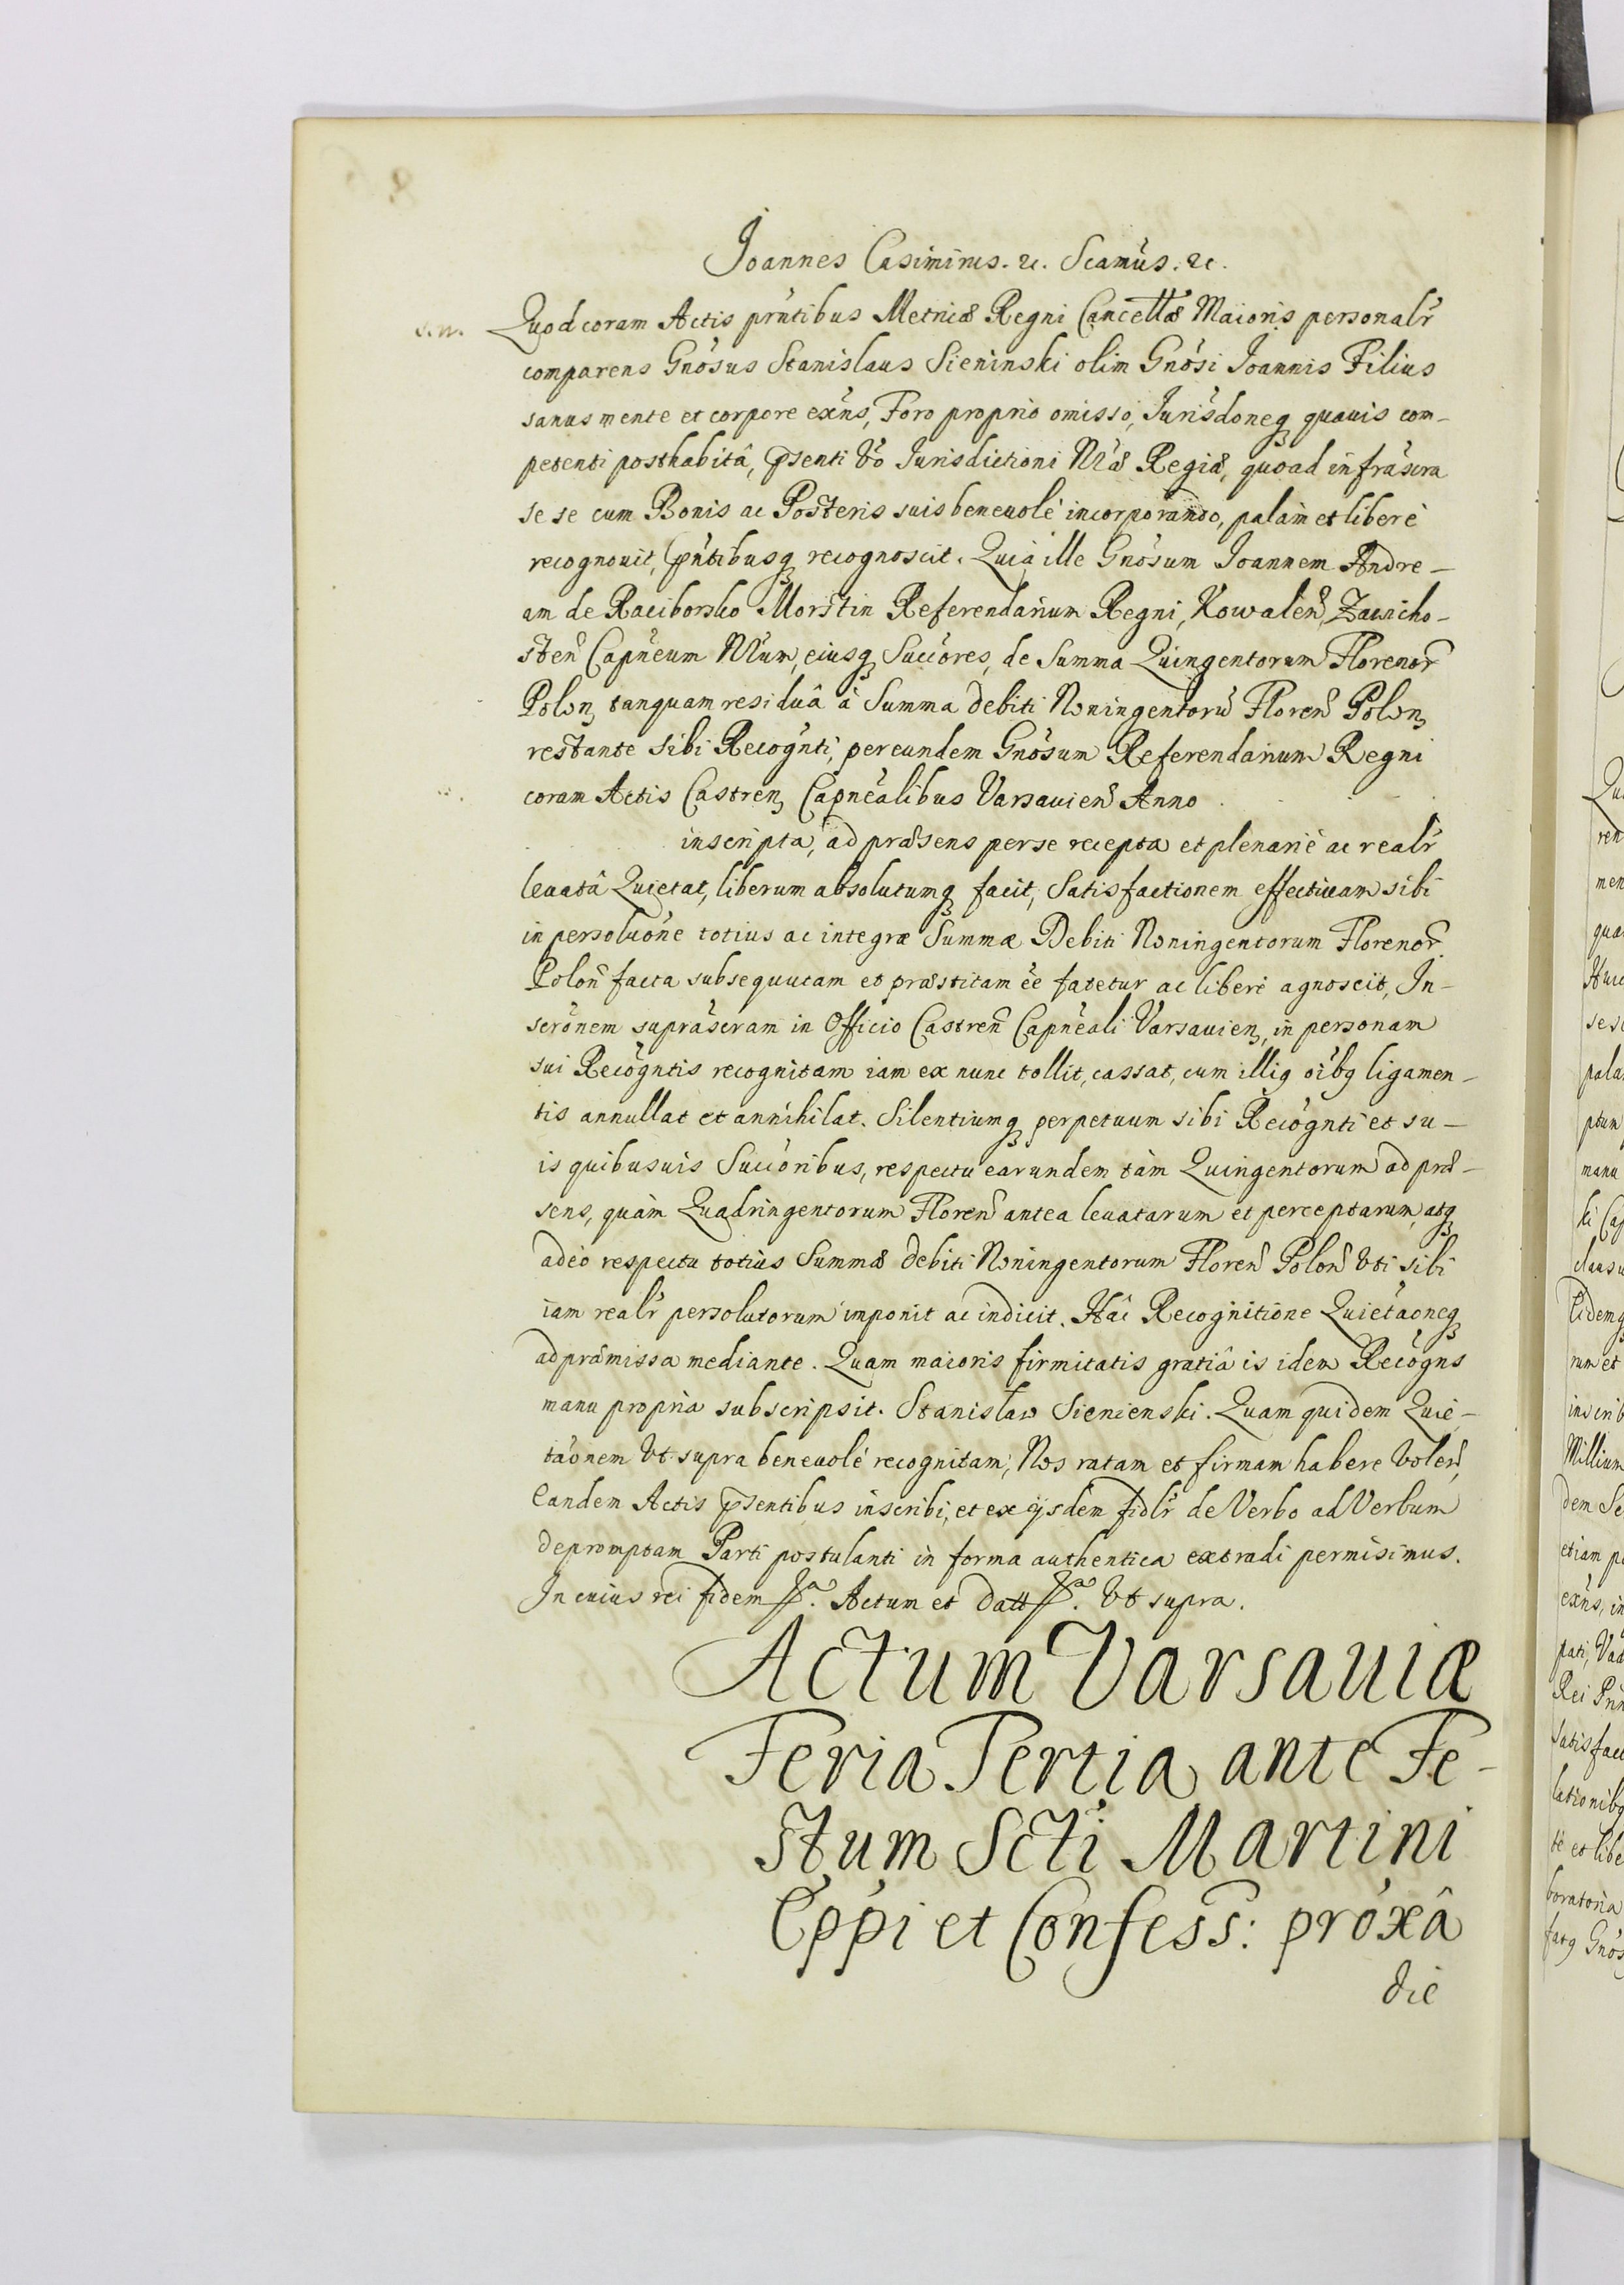 Joannes Casimirus. &c. Scamús. &c.
Quod coram Actis prńtibus Metricæ Regni Cancellæ Maioris personalr̃
comparens Gnósus Stanislaus Sieninski olim Gnósi Joannis Filius
sanus mente et corpore exńs, Foro proprio omisso, Jurisdoneq quauis com-
petenti posthabitâ, psenti Vo Jurisdictioni Nræ Regiæ, quoad infrascra
se se cum Bonis ac Posteris suis beneuolè incorporando, palàm et liberè
recognouit, pńtibusq recognoscit. Quia ille Gnósum Joannem Andre-
am de Raciborsko Morstin Referendarium Regni, Kowaleń, Zawicho-
steń Capńeum Nrum, eiusq Succóres, de Summa Quingentorum Florenor̃
Polon, tanquam residuâ à Summa debiti Noningentorũ Floreń Polon,
restante sibi Recognti, per eundem Gnósum Referendarium Regni
coram Actis Castren, Capnealibus Varsauień Anno
inscripta, ad præsens per se recepta et plenariè ac realr̃
leuatâ Quietat, liberum absolutumq facit, Satisfactionem effectiuam sibi
in persoluóne totius ac integræ Summæ Debiti Noningentorum Florenor̃
Poloń facta subsequutam et præstitam ée fatetur ac liberè agnoscit, In-
scrónem suprascram in Officio Castreń Capńeali Varsauien, in personam
sui Recogntis recognitam iam ex nunc tollit, cassat, cum illiq oĩbq ligamen-
tis annullat et annihilat. Silentiumq perpetuum sibi Recognti et su-
is quibusuis Succóribus, respectu earundem tàm Quingentorum ad præ-
sens, quàm Quadringentorum Floreń antea leuatarum et perceptarum, atq
adeò respectu totius Summæ debiti Noningentorum Floreń Poloń Vti sibi
iam realr̃ persolutorum imponit ac indicit. Hâc Recognitione Quietaoneq
ad præmissa mediante. Quam maioris firmitatis gratiâ is idem Recogńs
manu propria subscripsit. Stanisław Sienienski. Quam quidem Quie-
taónem Vt supra beneuolè recognitam, Nos ratam et firmam habere Voleń,
Eandem Actis psentibus inscribi, et ex ijsdem fidlr̃ de Verbo ad Verbum
depromptam Parti postulanti in forma authentica extradi permisimus.
In cuius rei fidem &. Actum et Datt &. Vt supra.
Actum Varsauiæ
Feria Tertia ante Fe-
stum Scti Martini
Eppi et Confess: próxâ
die